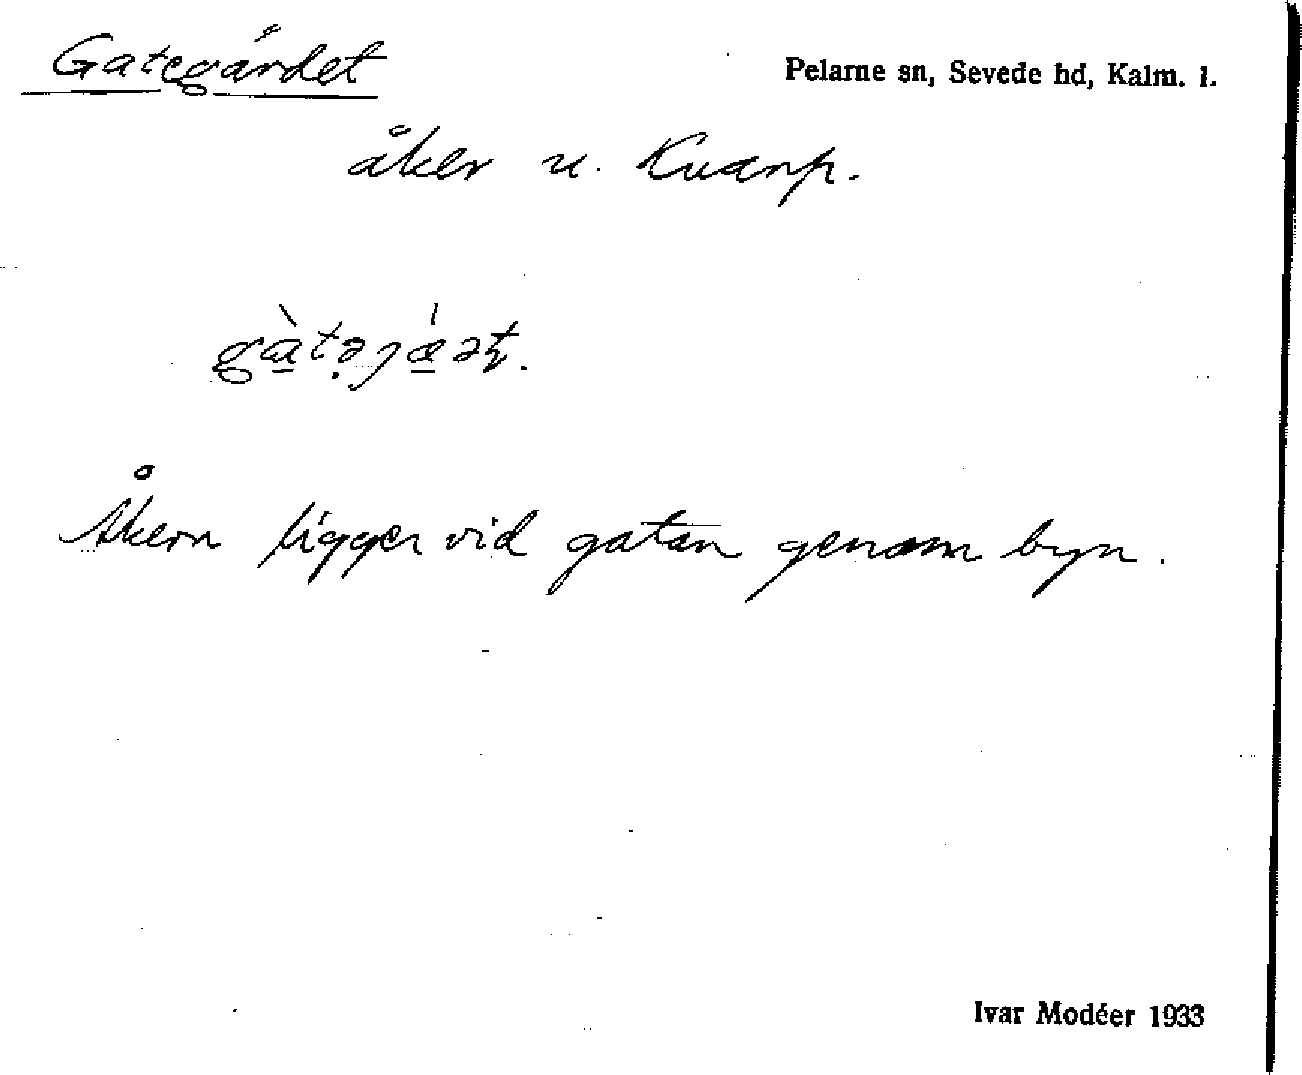 Gategårdet
Pelarne sn, Sevede hd, Kalm. l.
åker u. Kvarp.
Åkern ligger vid gatan genom byn.
Ivar Modéer 1933